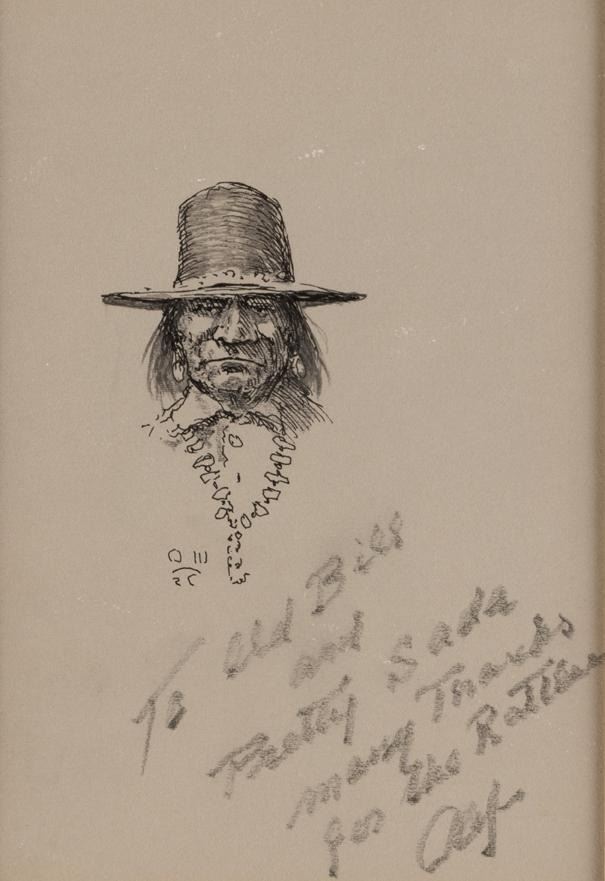 To Old Bill
and
Pretty Sada
many Thanks
for the Rattlers
Alf